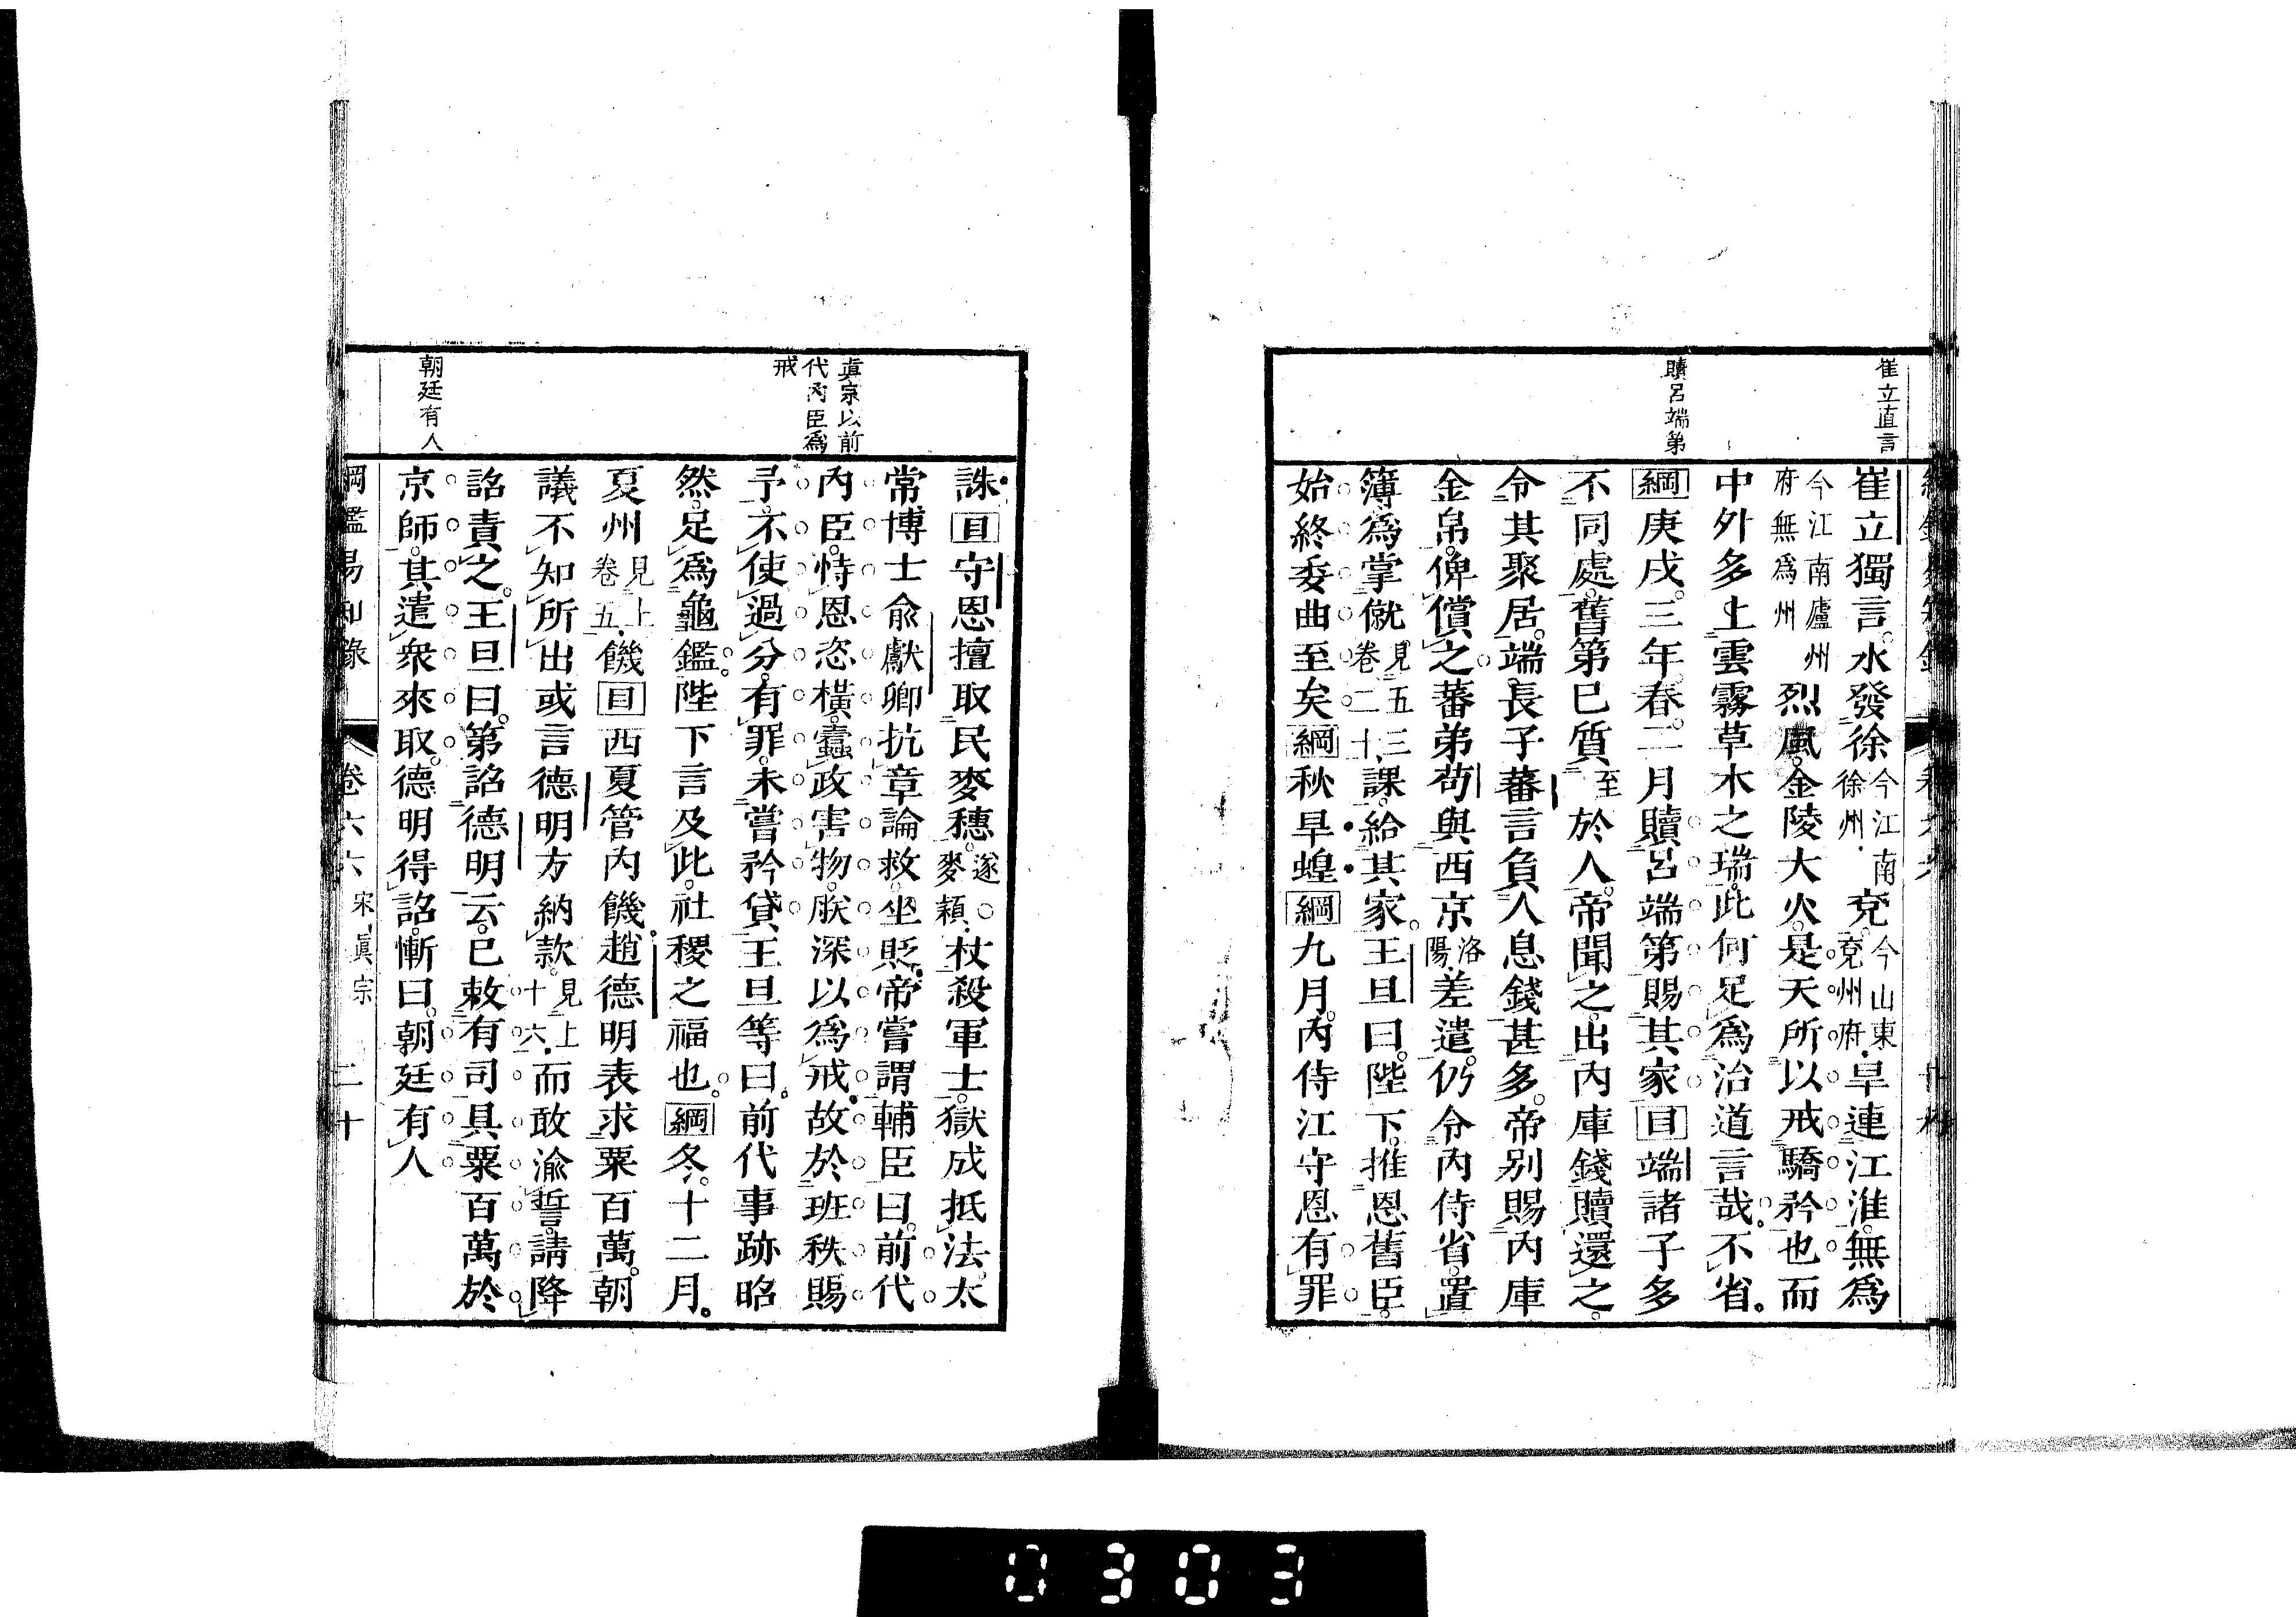 崔立直言
贖呂端第
崔立獨言水發徐今江南徐州兗今山東兗州府旱連江淮無爲
今江南廬州府無爲州烈風金陵大火是天所以戒驕矜也而
中外多上雲霧草木之瑞此何足爲治道言哉不省
綱庚戌三年春二月贖呂端第賜其家目端諸子多
不同處舊第已質至於人帝聞之出內庫錢贖還之
令其聚居端長子蕃言負人息錢甚多帝別賜內庫
金帛俾償之蕃弟荀與西京洛陽差遣仍令內侍省置
簿爲掌僦見五三卷二十課給其家王旦曰陛下推恩舊臣
始終委曲至矣綱秋旱蝗綱九月內侍江守恩有罪
眞宗以前
代內臣爲
戒
朝廷有人
誅目守恩擅取民麥穗遂麥穎杖殺軍士獄成抵法太
常博士俞獻卿抗章論救坐貶帝嘗謂輔臣曰前代
內臣恃恩恣橫蠹政害物朕深以爲戒故於班秩賜
予不使過分有罪未嘗矜貸王旦等曰前代事跡昭
然足爲龜鑑陛下言及此社稷之福也綱冬十二月
夏州見上卷五饑目西夏管內饑趙德明表求粟百萬朝
議不知所出或言德明方納款見上十六而敢渝誓請降
詔責之王旦曰第詔德明云已敕有司具粟百萬於
京師其遣衆來取德明得詔慚曰朝廷有人
綱鑑易知錄 卷六六 宋眞宗 二十
0303